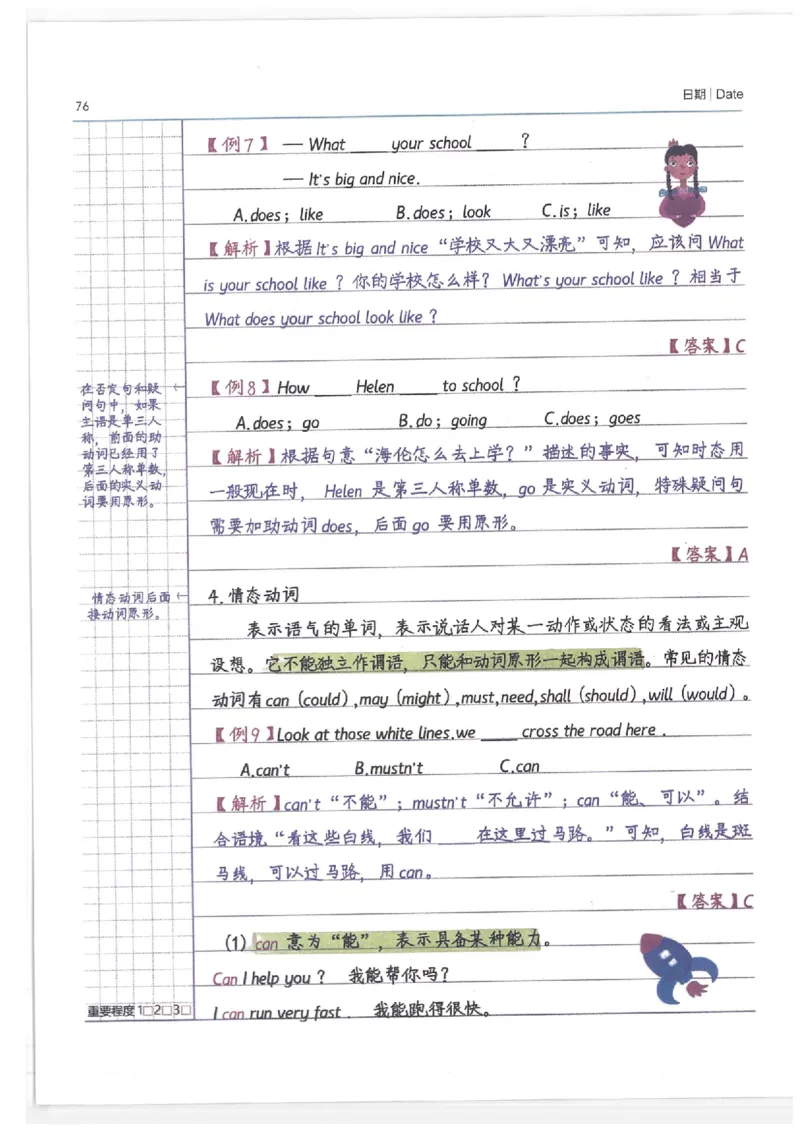 76
日期 | Date
【例7】 — What ____ your school ____ ?
— It's big and nice.
A.does；like B.does；look C.is；like
【解析】根据It's big and nice“学校又大又漂亮”可知，应该问What
is your school like ？你的学校怎么样？What's your school like ？相当于
What does your school look like ？
【答案】C
在否定句和疑
问句中，如果
主语是单三人
称，前面的助
动词已经用了
第三人称单数，
后面的实义动
词要用原形。
【例8】How ____ Helen ____ to school ？
A.does；go B.do；going C.does；goes
【解析】根据句意“海伦怎么去上学？”描述的事实，可知时态用
一般现在时，Helen 是第三人称单数，go 是实义动词，特殊疑问句
需要加助动词does，后面go 要用原形。
【答案】A
情态动词后面
接动词原形。
4.情态动词
表示语气的单词，表示说话人对某一动作或状态的看法或主观
设想。它不能独立作谓语，只能和动词原形一起构成谓语。常见的情态
动词有can（could）,may（might）,must,need,shall（should）,will（would）。
【例9】Look at those white lines.we ____ cross the road here .
A.can't B.mustn't C.can
【解析】can't“不能”；mustn't“不允许”；can“能、可以”。结
合语境“看这些白线，我们 ____ 在这里过马路。”可知，白线是斑
马线，可以过马路，用can。
【答案】C
（1）can 意为“能”，表示具备某种能力。
Can I help you ？ 我能帮你吗？
I can run very fast . 我能跑得很快。
重要程度 1□2□3□